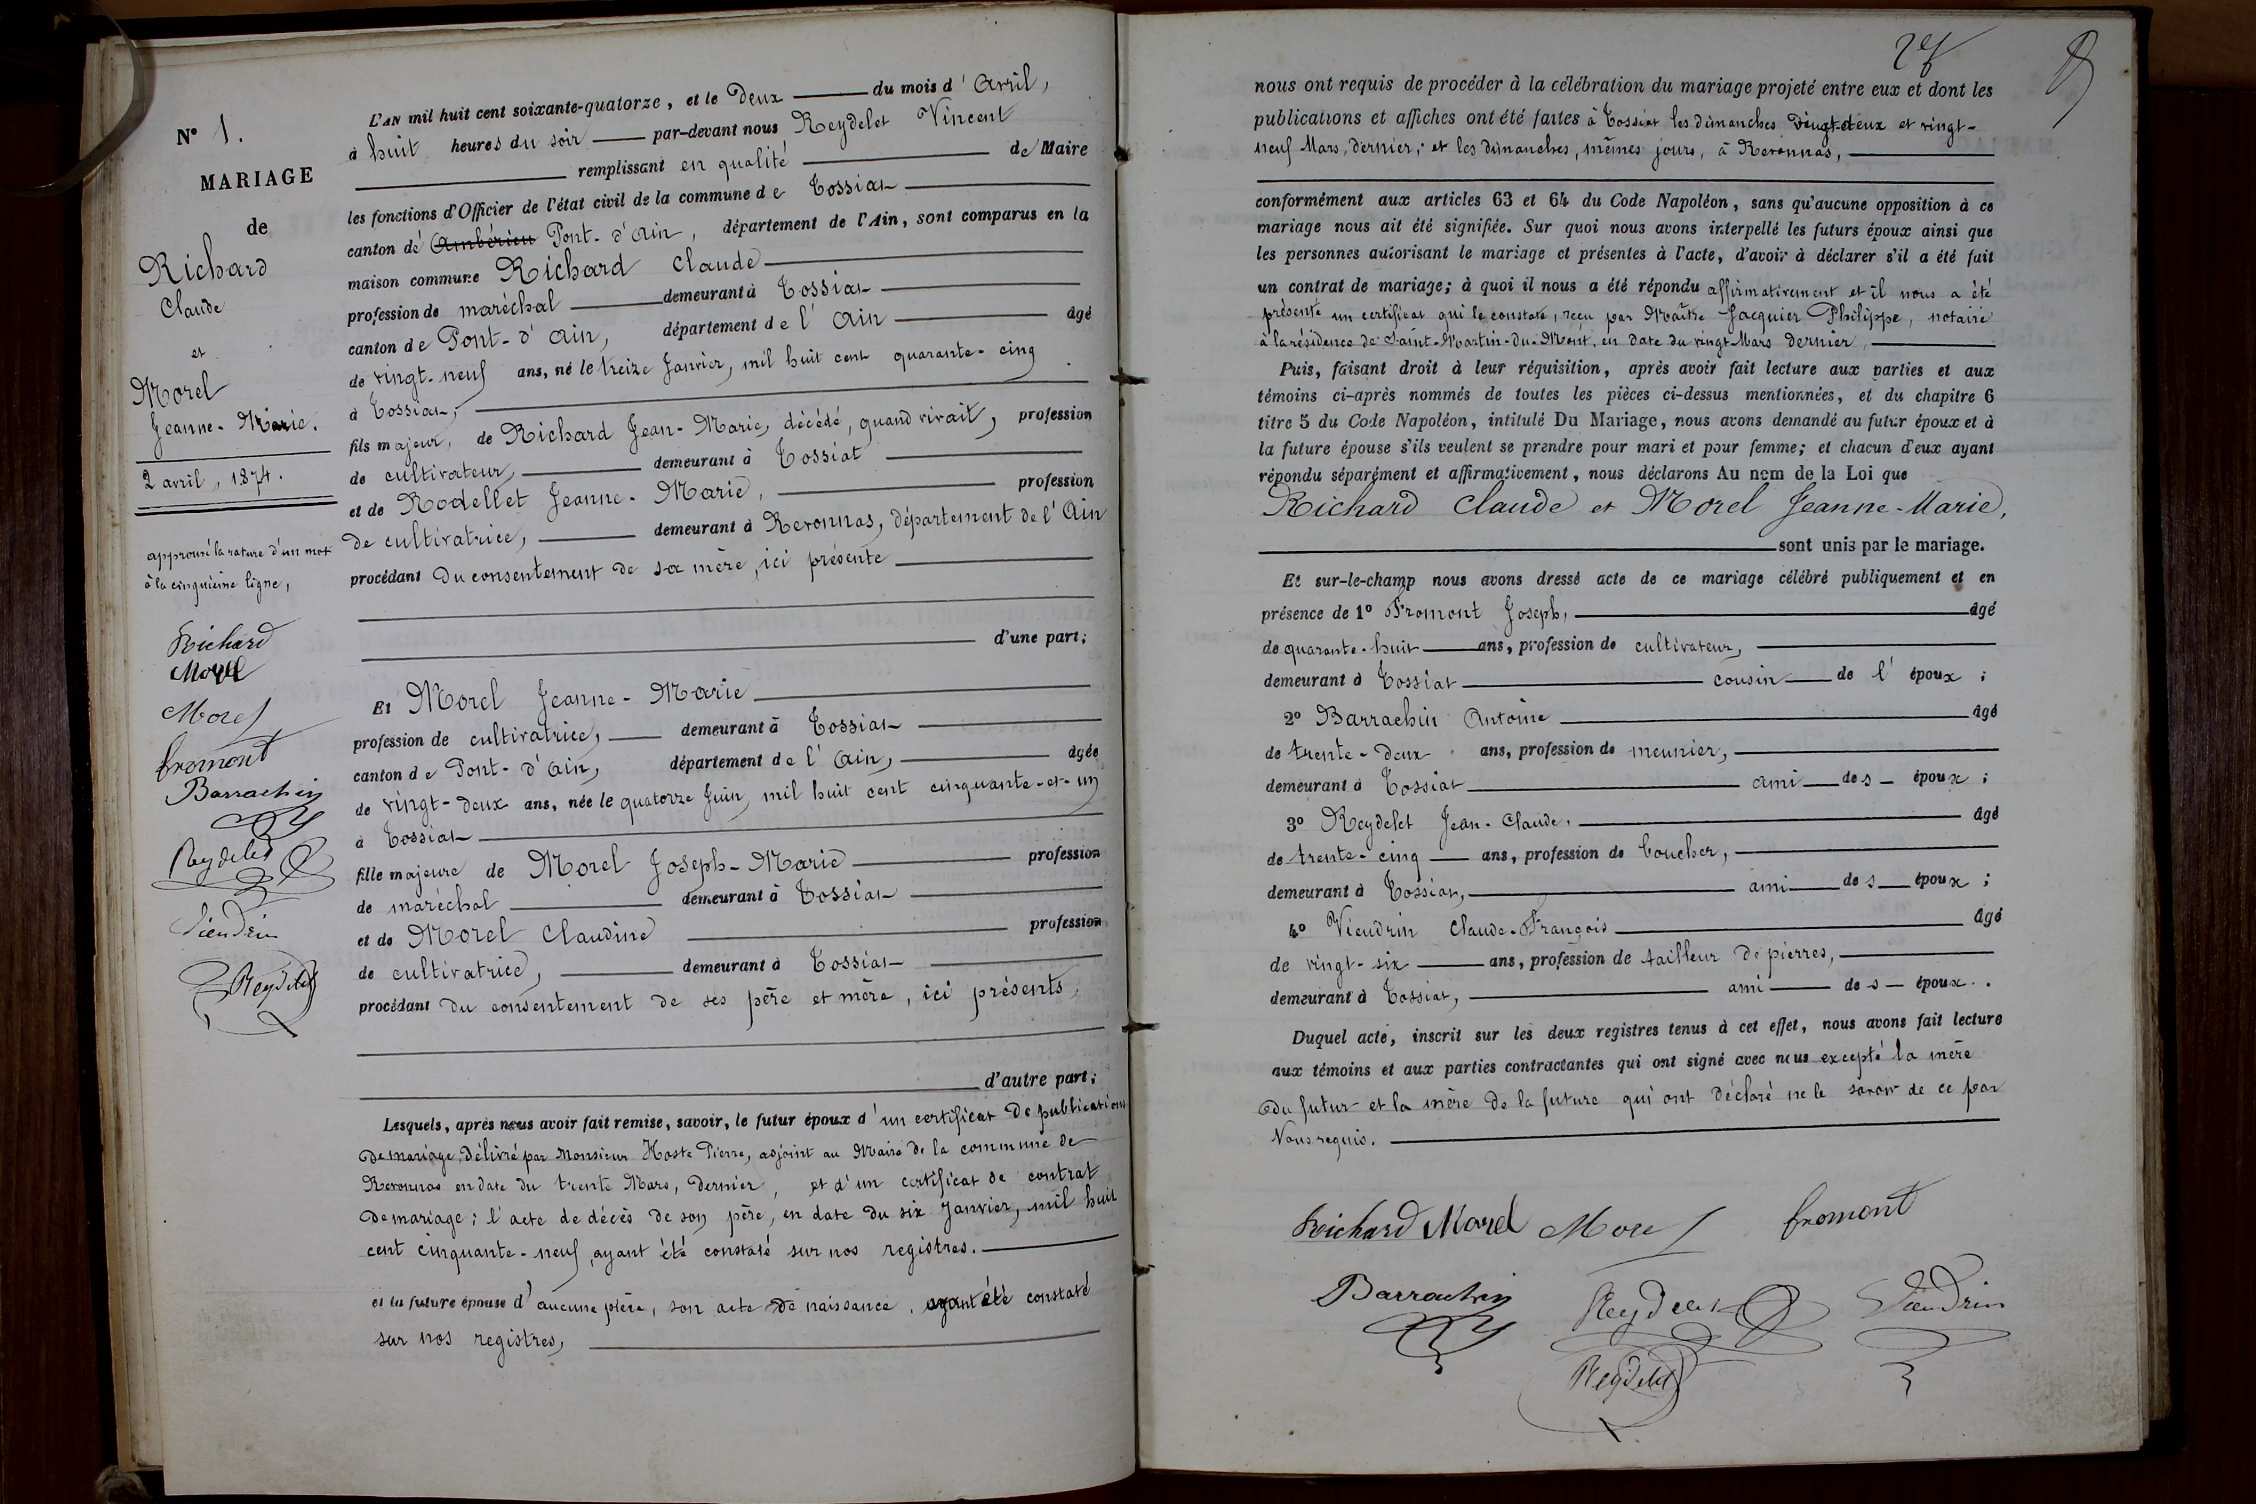 N° 1.
MARIAGE
de
Richard
Claude
et
Morel
Jeanne-Marie.
2 avril, 1874.
approuvé la rature d'un mot
à la cinquième ligne,
Richard
Morel
Morel
fromont
Barrachin
Reydelet
Vieudrin
Reydelet
L'AN mil huit cent soixante-quatorze, et le Deux du mois d'Avril,
à huit heures du soir par-devant nous Reydelet Vincent
remplissant en qualité de Maire
les fonctions d'Officier de l'état civil de la commune de Tossiat
canton de Ambérieu Pont-d'Ain, département de l'Ain, sont comparus en la
maison commune Richard Claude
profession de maréchal demeurant à Tossiat
canton de Pont-d'Ain, département de l'Ain âgé
de vingt-neuf ans, né le treize Janvier, mil huit cent quarante-cinq
à Tossiat,
fils majeur, de Richard Jean-Marie, décédé, quand vivait, profession
de cultivateur, demeurant à Tossiat
et de Rodellet Jeanne-Marie, profession
de cultivatrice, demeurant à Revonnas, département de l'Ain
procédant du consentement de sa mère, ici présente
d'une part;
Et Morel Jeanne-Marie
profession de cultivatrice, demeurant à Tossiat
canton de Pont-d'Ain, département de l'Ain, âgée
de vingt-deux ans, née le quatorze Juin, mil huit cent cinquante-et-un
à Tossiat
fille majeure de Morel Joseph-Marie profession
de maréchal demeurant à Tossiat
et de Morel Claudine profession
de cultivatrice, demeurant à Tossiat
procédant du consentement de ses père et mère, ici présents,
d'autre part;
Lesquels, après nous avoir fait remise, savoir, le futur époux d'un certificat de publications
de mariage, délivré par Monsieur Hoste Pierre, adjoint au Maire de la commune de
Revonnas en date du trente Mars, dernier, et d'un certificat de contrat
de mariage; l'acte de décès de son père, en date du six Janvier, mil huit
cent cinquante-neuf, ayant été constaté sur nos registres.
et la future épouse d'aucune pièce, son acte de naissance, ayant été constaté
sur nos registres,
nous ont requis de procéder à la célébration du mariage projeté entre eux et dont les
publications et affiches ont été faites à Tossiat les dimanches vingt-deux et vingt-
neuf Mars, dernier, et les dimanches, mêmes jours, à Revonnas,
conformément aux articles 63 et 64 du Code Napoléon, sans qu'aucune opposition à ce
mariage nous ait été signifiée. Sur quoi nous avons interpellé les futurs époux ainsi que
les personnes autorisant le mariage et présentes à l'acte, d'avoir à déclarer s'il a été fait
un contrat de mariage; à quoi il nous a été répondu affirmativement et il nous a été
présenté un certificat qui le constate, reçu par Maître Jacquier Philippe, notaire
à la résidence de Saint-Martin-du-Mont, en date du vingt Mars dernier,
Puis, faisant droit à leur réquisition, après avoir fait lecture aux parties et aux
témoins ci-après nommés de toutes les pièces ci-dessus mentionnées, et du chapitre 6
titre 5 du Code Napoléon, intitulé Du Mariage, nous avons demandé au futur époux et à
la future épouse s'ils veulent se prendre pour mari et pour femme; et chacun d'eux ayant
répondu séparément et affirmativement, nous déclarons Au nom de la Loi que
Richard Claude et Morel Jeanne-Marie,
sont unis par le mariage.
Et sur-le-champ nous avons dressé acte de ce mariage célébré publiquement et en
présence de 1° Fromont Joseph, âgé
de quarante-huit ans, profession de cultivateur,
demeurant à Tossiat cousin de l'époux;
2° Barrachin Antoine âgé
de trente-deux ans, profession de meunier,
demeurant à Tossiat ami des époux;
3° Reydelet Jean-Claude, âgé
de trente-cinq ans, profession de boucher,
demeurant à Tossiat, ami des époux;
4° Vieudrin Claude-François âgé
de vingt-six ans, profession de tailleur de pierres,
demeurant à Tossiat, ami des époux.
Duquel acte, inscrit sur les deux registres tenus à cet effet, nous avons fait lecture
aux témoins et aux parties contractantes qui ont signé avec nous excepté la mère
du futur et la mère de la future qui ont déclaré ne le savoir de ce par
Nous requis.
Richard Morel Morel fromont
Barrachin Reydelet Vieudrin
Reydelet